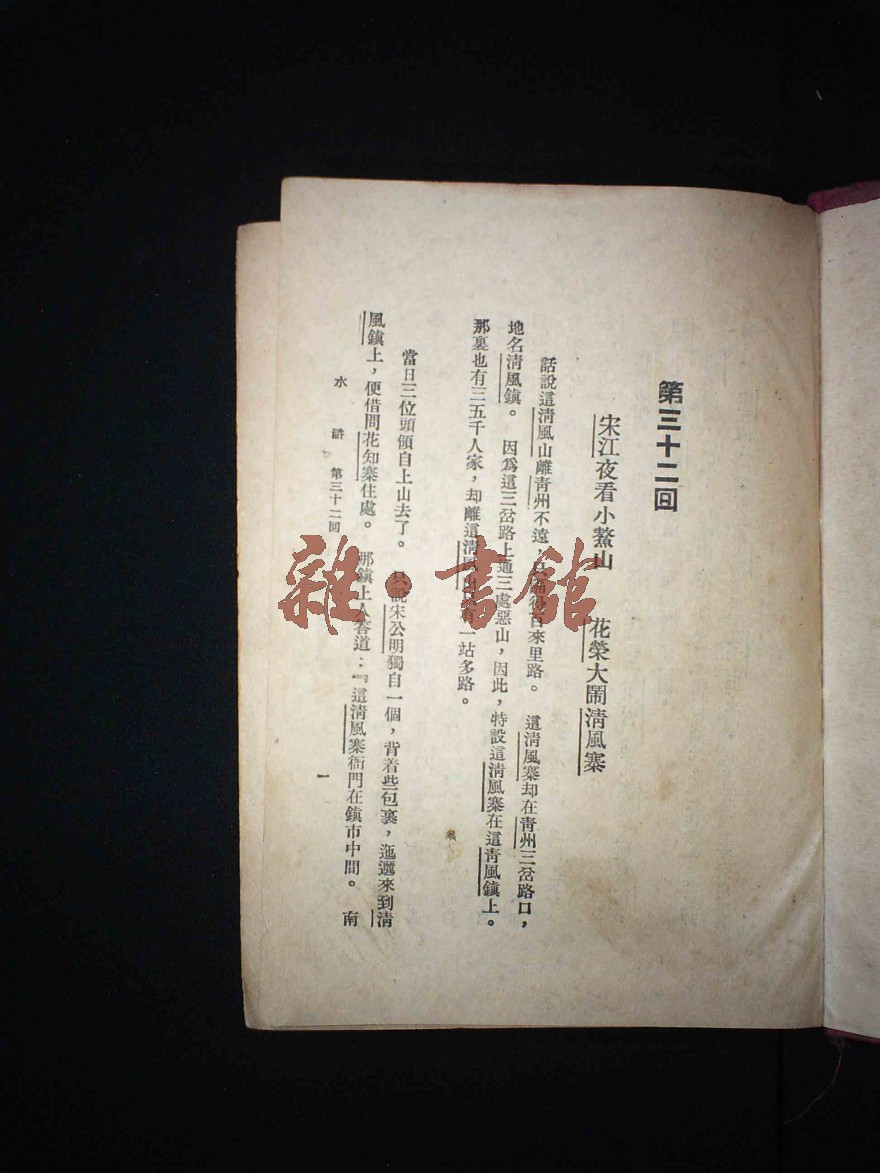 第三十二回
宋江夜看小鰲山　花榮大鬧清風寨
話說這清風山離青州不遠，只隔得百來里路。這清風寨却在青州三岔路口，
地名清風鎮。因爲這三岔路上通三處惡山，因此，特設這清風寨在這青風鎮上。
那裏也有三五千人家，却離這清風山只有一站多路。
當日三位頭領自上山去了。只說宋公明獨自一個，背着些包裹，迤邐來到清
風鎮上，便借問花知寨住處。那鎮上人答道：『這清風寨衙門在鎮市中間。南
水滸　第三十二回
一
雜·書館